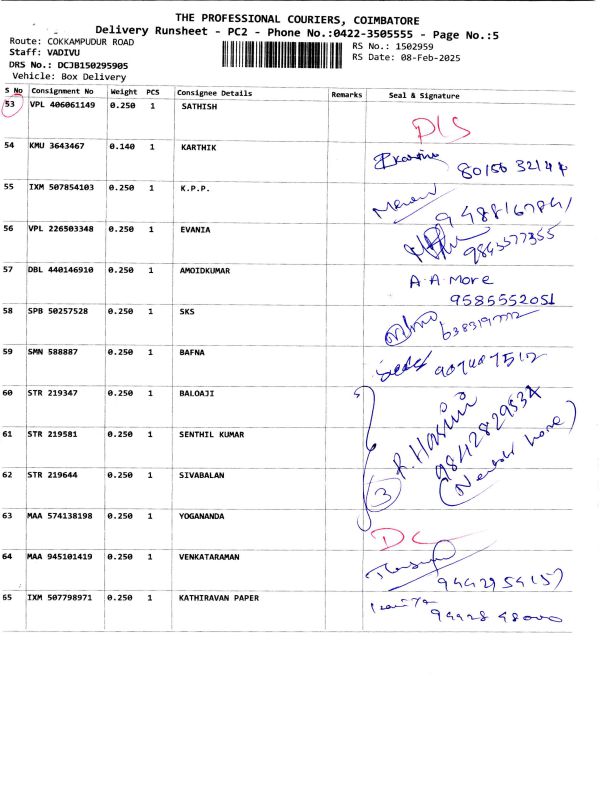 THE PROFESSIONAL COURIERS, COIMBATORE
Delivery Runsheet - PC2 - Phone No.:0422-3505555 - Page No.:5
Route: COKKAMPUDUR ROAD RS No.: 1502959
Staff: VADIVU RS Date: 08-Feb-2025
DRS No.: DCJB150295905
Vehicle: Box Delivery
S No Consignment No Weight PCS Consignee Details Remarks Seal & Signature
53 VPL 406061149 0.250 1 SATHISH
D/S
54 KMU 3643467 0.140 1 KARTHIK
55 IXM 507854103 0.250 1 K.P.P.
56 VPL 226503348 0.250 1 EVANIA
9843577355
57 DBL 440146910 0.250 1 AMOIDKUMAR
A.A. More
9585552051
58 SPB 50257528 0.250 1 SKS
59 SMN 588887 0.250 1 BAFNA
60 STR 219347 0.250 1 BALOAJI
R. Hasini
9842829534
61 STR 219581 0.250 1 SENTHIL KUMAR
62 STR 219644 0.250 1 SIVABALAN
3
63 MAA 574138198 0.250 1 YOGANANDA
DC
64 MAA 945101419 0.250 1 VENKATARAMAN
9442954157
65 IXM 507798971 0.250 1 KATHIRAVAN PAPER